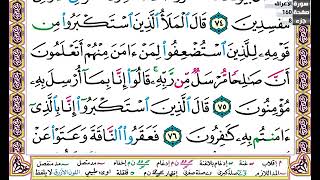 سورة الأعراف
صفحة 160
جزء 8
مُفْسِدِينَ ٧٤ قَالَ ٱلْمَلَأُ ٱلَّذِينَ ٱسْتَكْبَرُوا۟ مِن
قَوْمِهِۦ لِلَّذِينَ ٱسْتُضْعِفُوا۟ لِمَنْ ءَامَنَ مِنْهُمْ أَتَعْلَمُونَ
أَنَّ صَٰلِحًا مُّرْسَلٌ مِّن رَّبِّهِۦ ۚ قَالُوٓا۟ إِنَّا بِمَآ أُرْسِلَ بِهِۦ
مُؤْمِنُونَ ٧٥ قَالَ ٱلَّذِينَ ٱسْتَكْبَرُوٓا۟ إِنَّا بِٱلَّذِىٓ
ءَامَنتُم بِهِۦ كَٰفِرُونَ ٧٦ فَعَقَرُوا۟ ٱلنَّاقَةَ وَعَتَوْا۟ عَنْ